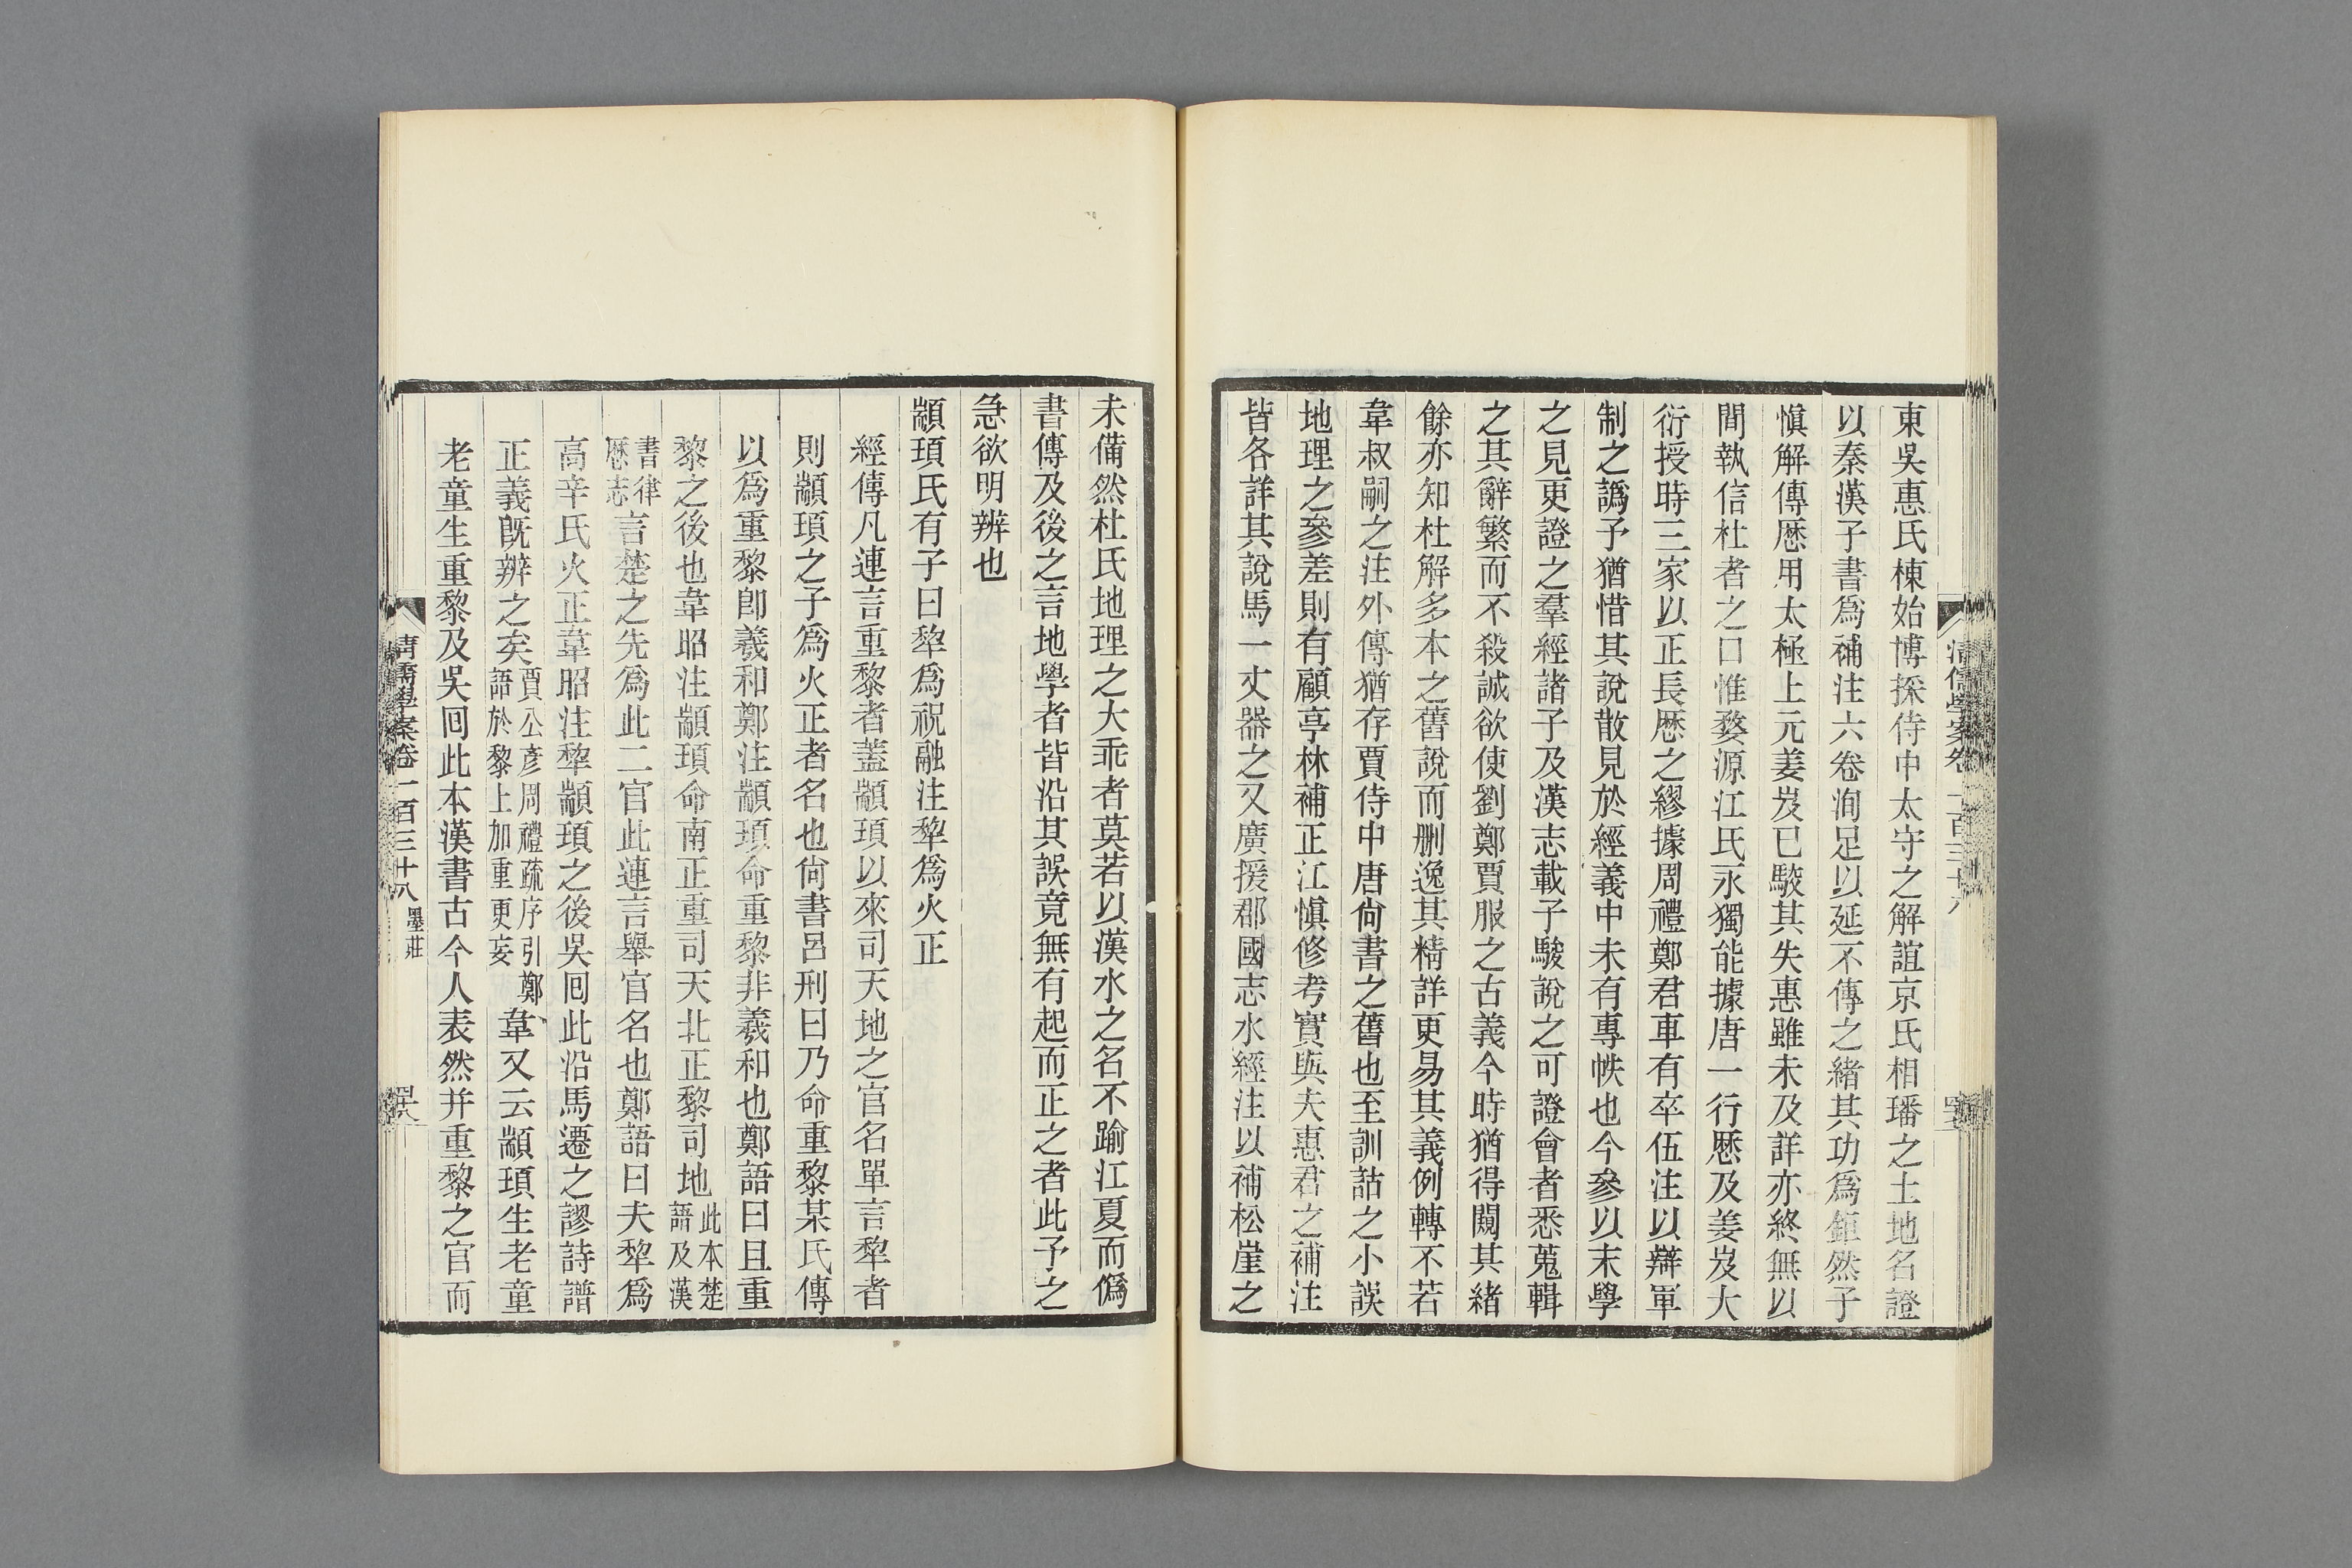 東吳惠氏棟始博採侍中太守之解誼京氏相璠之土地名證
以秦漢子書爲補注六卷洵足以延不傳之緒其功爲鉅然子
愼解傳厯用太極上元姜岌已駮其失惠雖未及詳亦終無以
間執信杜者之口惟婺源江氏永獨能據唐一行厯及姜岌大
衍授時三家以正長厯之繆據周禮鄭君車有卒伍注以辯軍
制之譌予猶惜其說散見於經義中未有專帙也今參以末學
之見更證之羣經諸子及漢志載子駿說之可證會者悉蒐輯
之其辭繁而不殺誠欲使劉鄭賈服之古義今時猶得闚其緒
餘亦知杜解多本之舊說而刪逸其精詳更易其義例轉不若
韋叔嗣之注外傳猶存賈侍中唐尙書之舊也至訓詁之小誤
地理之參差則有顧亭林補正江愼修考實與夫惠君之補注
皆各詳其說馬一丈器之又廣援郡國志水經注以補松崖之
清儒學案卷一百三十八
未備然杜氏地理之大乖者莫若以漢水之名不踰江夏而僞
書傳及後之言地學者皆沿其誤竟無有起而正之者此予之
急欲明辨也
顓頊氏有子曰犂爲祝融注犂爲火正
經傳凡連言重黎者蓋顓頊以來司天地之官名單言犂者
則顓頊之子爲火正者名也尙書呂刑曰乃命重黎某氏傳
以爲重黎卽羲和鄭注顓頊命重黎非羲和也鄭語曰且重
黎之後也韋昭注顓頊命南正重司天北正黎司地此本楚語及漢
書律厯志言楚之先爲此二官此連言舉官名也鄭語曰夫犂爲
高辛氏火正韋昭注犂顓頊之後吳囘此沿馬遷之謬詩譜
正義旣辨之矣賈公彥周禮疏序引鄭語於黎上加重更妄韋又云顓頊生老童
老童生重黎及吳囘此本漢書古今人表然幷重黎之官而
清儒學案卷一百三十八 墨莊